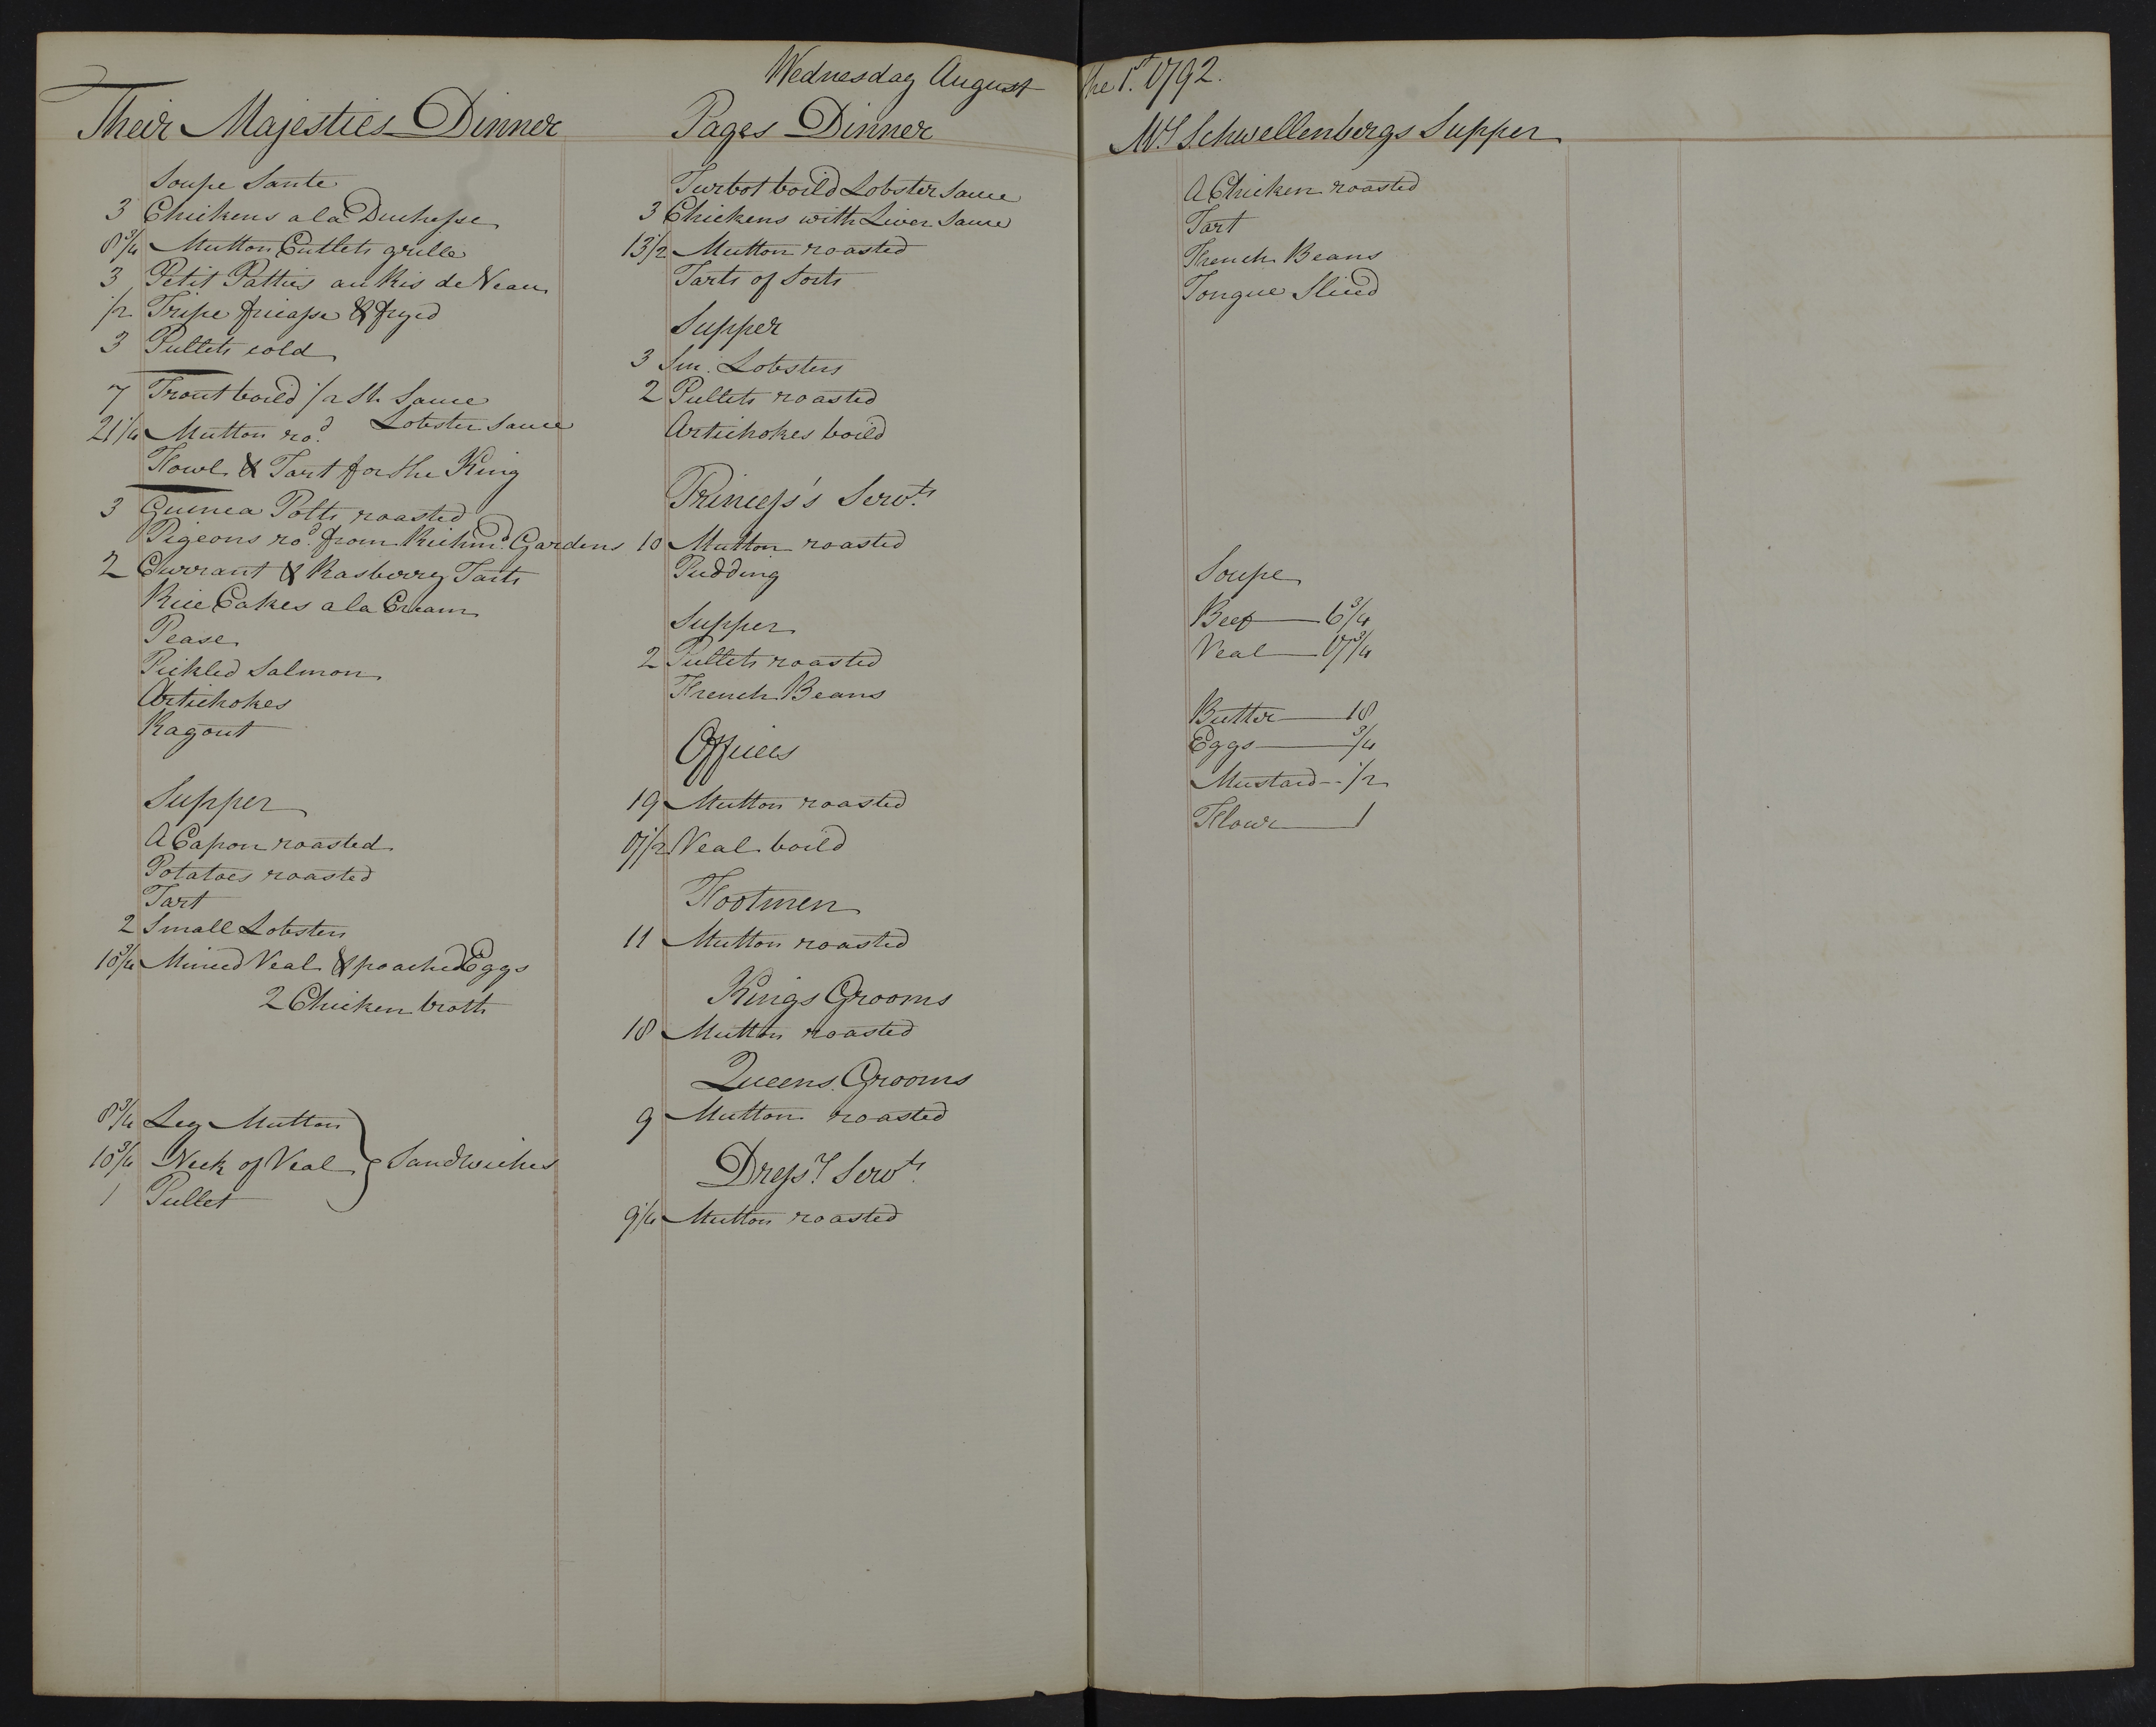 Wednesday August the 1st. 1792.
Their Majesties Dinner
Soupe Sante
3 Chickens a la Duchesse
8 3/4 Mutton Cutlets grille
3 Petit Patties au Ris de Veau
1/2 Tripe fricasse & fryd
3 Pullets cold
7 Trout boild 1/2 Sh. Sauce
Lobster Sauce
21 1/4 Mutton rod.
Fowl & Tart for the King
3 Guinea Polts roasted
Pigeons rod. from Richmd. Gardens
2 Currant & Rasberry Tarts
Rice Cakes a la Cream
Pease
Pickled Salmon
Artichokes
Ragout
Supper
A Capon roasted
Potatoes roasted
Tart
2 Small Lobsters
10 3/4 Minced Veal & poached Eggs
2 Chicken broth
8 3/4 Leg Mutton
10 3/4 Neck of Veal } Sandwiches
1 Pullet
Pages Dinner
Turbot boild Lobster Sauce
3 Chickens with Liver Sauce
13 1/2 Mutton roasted
Tarts of Sorts
Supper
3 Sm. Lobsters
2 Pullets roasted
Artichokes boild
Princess's Servts.
10 Mutton roasted
Pudding
Supper
2 Pullets roasted
French Beans
Offices
19 Mutton roasted
7 1/2 Veal boild
Footmen
11 Mutton roasted
Kings Grooms
18 Mutton roasted
Queens Grooms
9 Mutton roasted
Dressrs. Servts.
9 1/4 Mutton roasted
Mrs. Schwellenbergs Supper
A Chicken roasted
Tart
French Beans
Tongue Sliced
Soupe
Beef 6 3/4
Veal 7 3/4
Butter 18
Eggs 3/4
Mustard 1/2
Flour 1